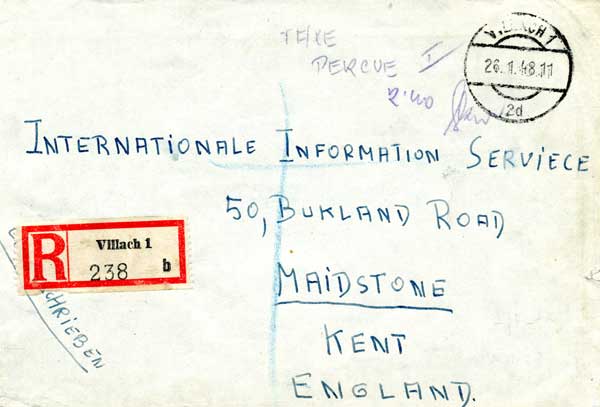 TAXE
PERCUE
2.40
VILLACH 1
26.1.48.11
2d
INTERNATIONALE INFORMATION SERVIECE
50, BUKLAND ROAD
R Villach 1
238 b
MAIDSTONE
KENT
ENGLAND.